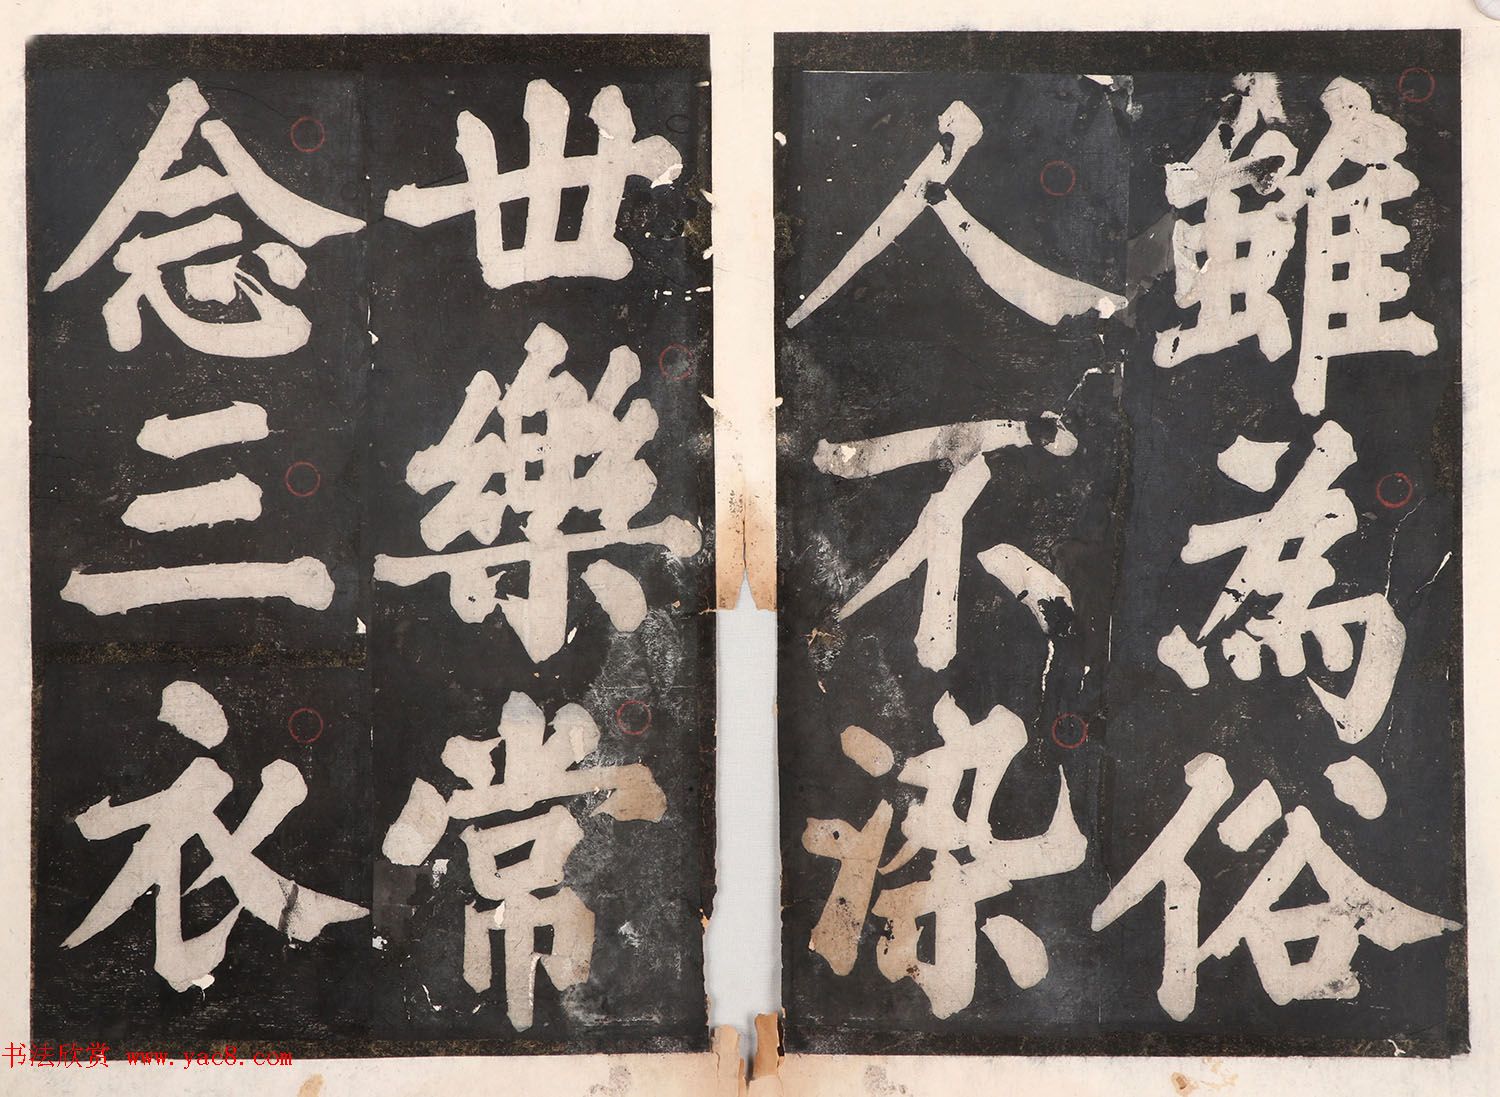 雖為俗
人不染
世樂常
念三衣
书法欣赏 www.yac8.com